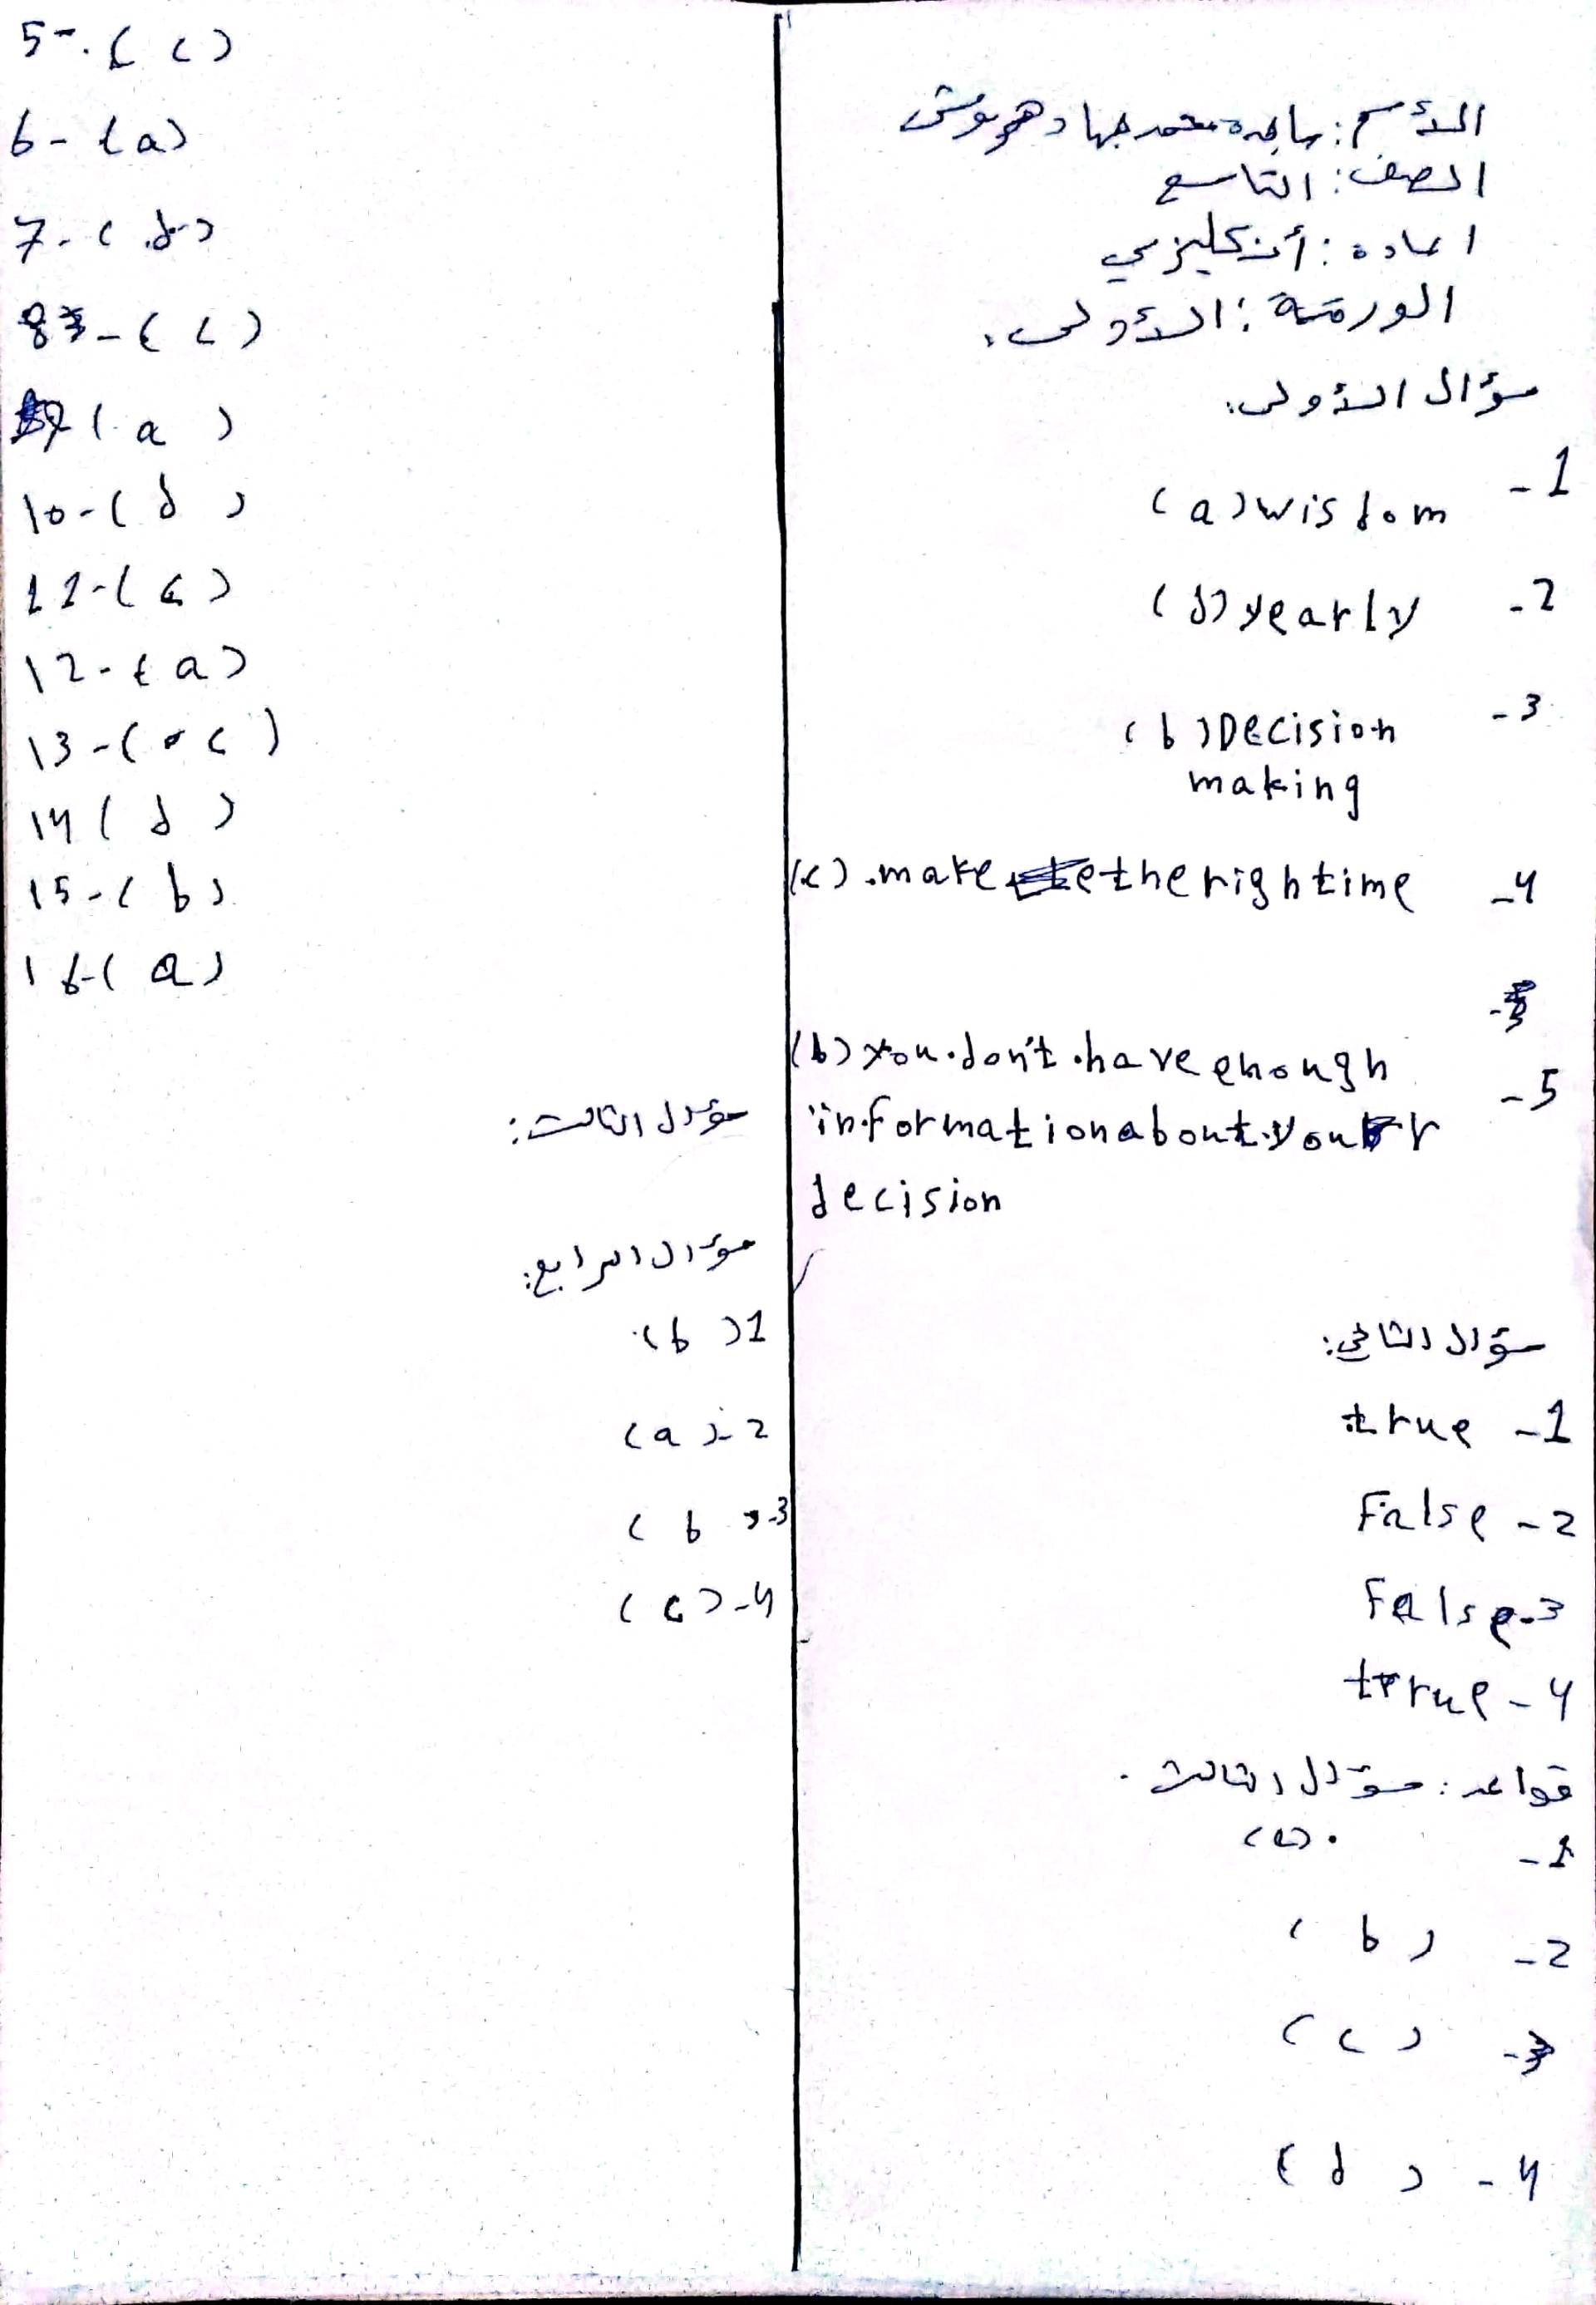 الأسم: ماجده محمد جهاد هرموش
الصف: التاسع
المادة: أنكليزي
الورقة: الأولى.
سؤال الأولى:
1- (a) wisdom
2- (d) yearly
3- (b) Decision
making
4- (c) make the righ time
5- (b) you don't have enough
information about your
decision
سؤال الثاني:
1- true
2- False
3- False
4- true
قواعد: سؤال الثالث.
1- (c)
2- (b)
3- (c)
4- (d)
5- (c)
6- (a)
7- (d)
8- (c)
9 (a)
10- (d)
11- (c)
12- (a)
13- (c)
14 (d)
15- (b)
16- (a)
سؤال الثالث:
سؤال الرابع:
1 (b)
2- (a)
3- (b)
4- (c)